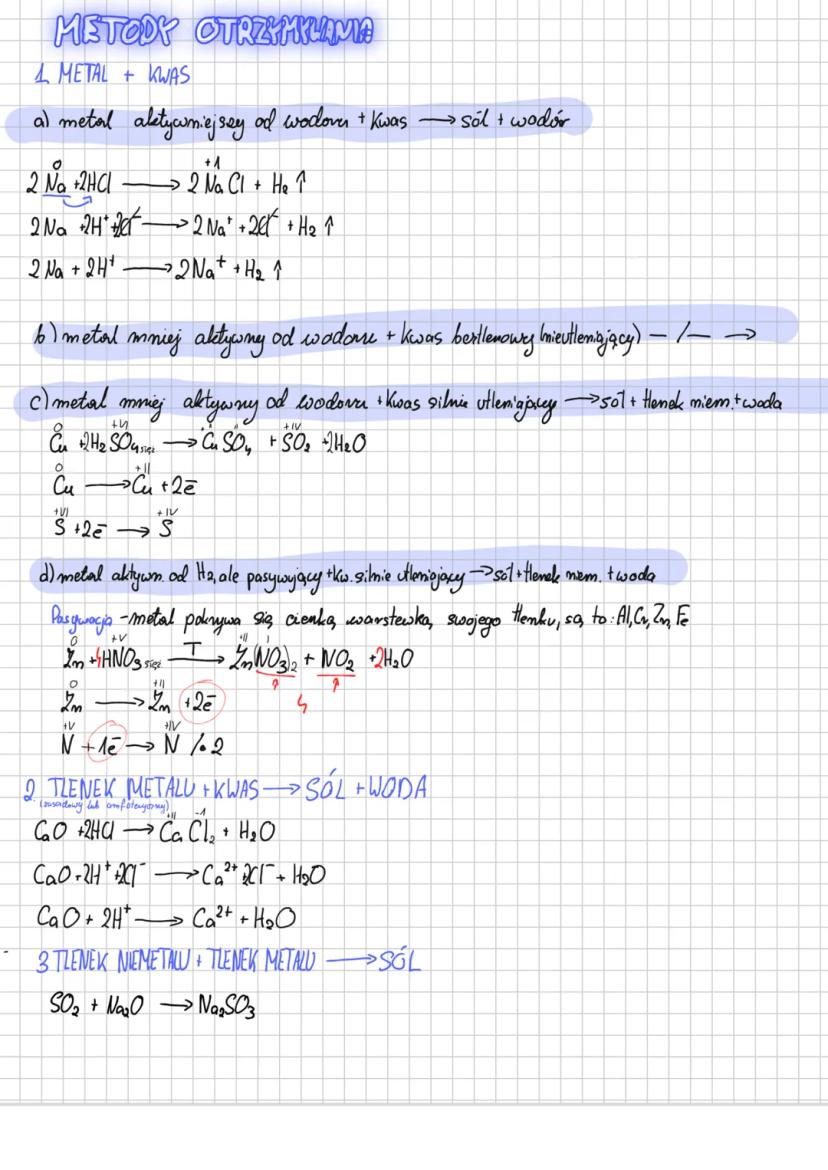 METODY OTRZYMYWANIA
1. METAL + KWAS
a) metal aktywniejszy od wodoru + kwas → sól + wodór
0 +1
2 Na + 2HCl → 2 NaCl + H₂ ↑
2 Na + 2H⁺ + 2Cl⁻ → 2 Na⁺ + 2Cl⁻ + H₂ ↑
2 Na + 2H⁺ → 2Na⁺ + H₂ ↑
b) metal mniej aktywny od wodoru + kwas beztlenowy (nieutleniający) — / — →
c) metal mniej aktywny od wodoru + kwas silnie utleniający → sól + tlenek niem. + woda
0 +VI +II +IV
Cu + 2H₂SO₄ stęż → CuSO₄ + SO₂ + 2H₂O
0 +II
Cu → Cu + 2e̅
+VI +IV
S + 2e̅ → S
d) metal aktywn. od H₂, ale pasywujący + kw. silnie utleniający → sól + tlenek niem. + woda
Pasywacja - metal pokrywa się cienką warstewką swojego tlenku, są to: Al, Cr, Zn, Fe
0 +V +II
Zn + 4HNO₃ stęż —T→ Zn(NO₃)₂ + NO₂ + 2H₂O
0 +II
Zn → Zn + 2e̅
+V +IV
N + 1e̅ → N /· 2
2. TLENEK METALU + KWAS → SÓL + WODA
(zasadowy lub amfoteryczny)
+II -1
CaO + 2HCl → CaCl₂ + H₂O
CaO + 2H⁺ + 2Cl⁻ → Ca²⁺ + 2Cl⁻ + H₂O
CaO + 2H⁺ → Ca²⁺ + H₂O
3 TLENEK NIEMETALU + TLENEK METALU → SÓL
SO₂ + Na₂O → Na₂SO₃